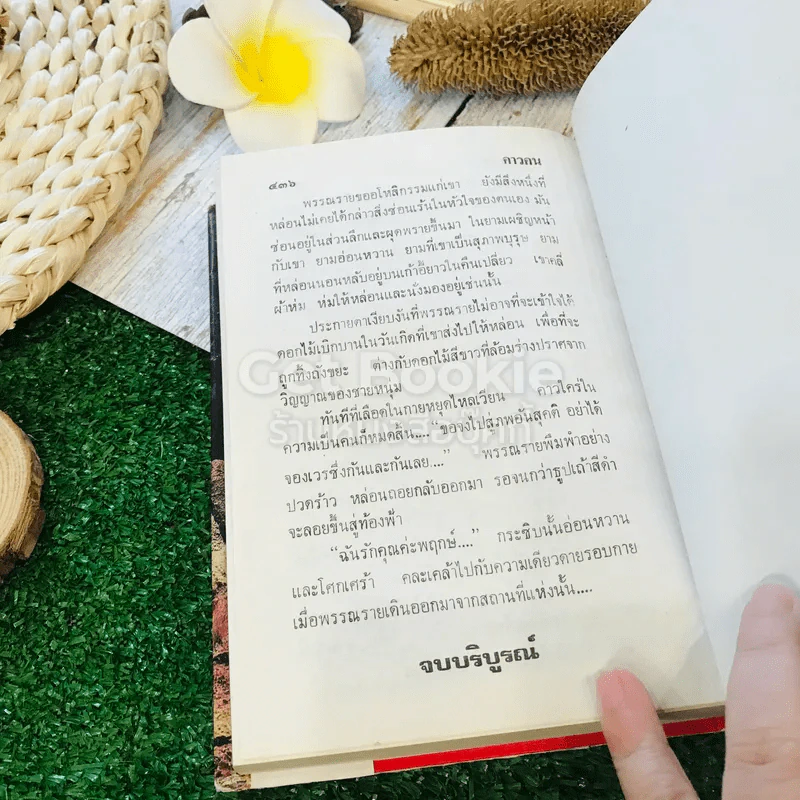 ๔๓๖
คาวคน
พรรณรายขออโหสิกรรมแก่เขา ยังมีสิ่งหนึ่งที่
หล่อนไม่เคยได้กล่าวสิ่งซ่อนเร้นในหัวใจของตนเอง มัน
ซ่อนอยู่ในส่วนลึกและผุดพรายขึ้นมา ในยามเผชิญหน้า
กับเขา ยามอ่อนหวาน ยามที่เขาเป็นสุภาพบุรุษ ยาม
ที่หล่อนนอนหลับอยู่บนเก้าอี้ยาวในคืนเปลี่ยว เขาคลี่
ผ้าห่ม ห่มให้หล่อนและนั่งมองอยู่เช่นนั้น
ประกายตาเงียบงันที่พรรณรายไม่อาจที่จะเข้าใจได้
ดอกไม้เบิกบานในวันเกิดที่เขาส่งไปให้หล่อน เพื่อที่จะ
ถูกทิ้งถังขยะ ต่างกับดอกไม้สีขาวที่ล้อมร่างปราศจาก
วิญญาณของชายหนุ่ม
Got Bookie
ทันทีที่เลือดในกายหยุดไหลเวียน คาวใคร่ใน
ร้านหนังสือบุ๊คกี้
ความเป็นคนก็หมดสิ้น....“ขอจงไปสู่ภพอันสุคติ อย่าได้
จองเวรซึ่งกันและกันเลย....” พรรณรายพึมพำอย่าง
ปวดร้าว หล่อนถอยกลับออกมา รอจนกว่าธูปเถ้าสีดำ
จะลอยขึ้นสู่ท้องฟ้า
“ฉันรักคุณค่ะพฤกษ์....” กระซิบนั้นอ่อนหวาน
และโศกเศร้า คละเคล้าไปกับความเดียวดายรอบกาย
เมื่อพรรณรายเดินออกมาจากสถานที่แห่งนั้น....
จบบริบูรณ์